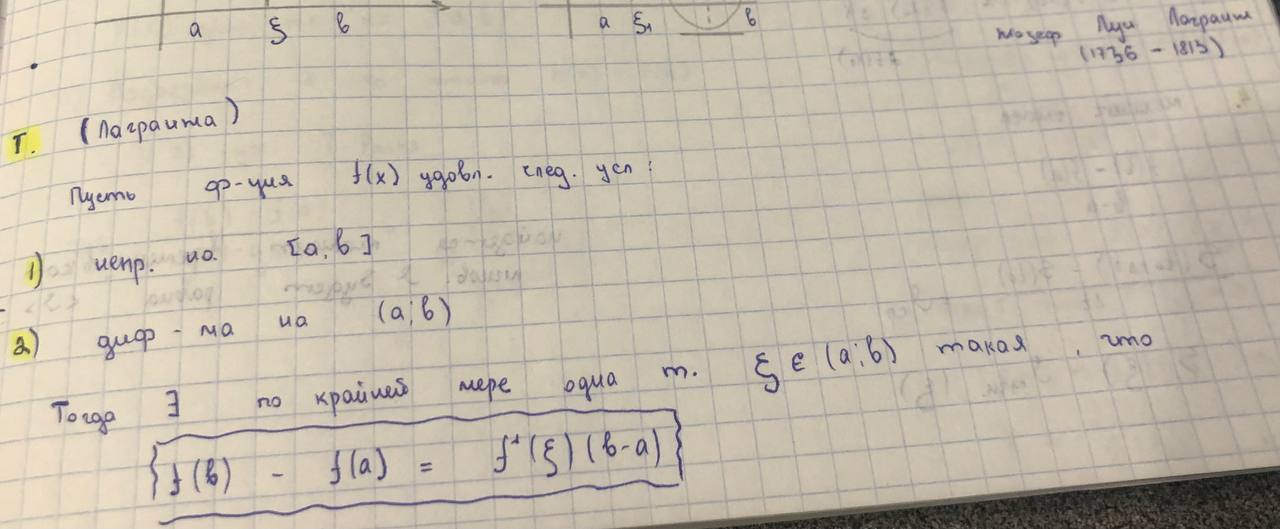 a ξ в
a ξ₁ в
Жозеф Луи Лагранж
(1736 - 1813)
Т. (Лагранжа)
Пусть ф-ция f(x) удовл. след. усл:
1) непр. на [a, в]
2) диф-ма на (a; в)
Тогда ∃ по крайней мере одна т. ξ ∈ (a; в) такая, что
f(в) - f(a) = f'(ξ)(в-a)